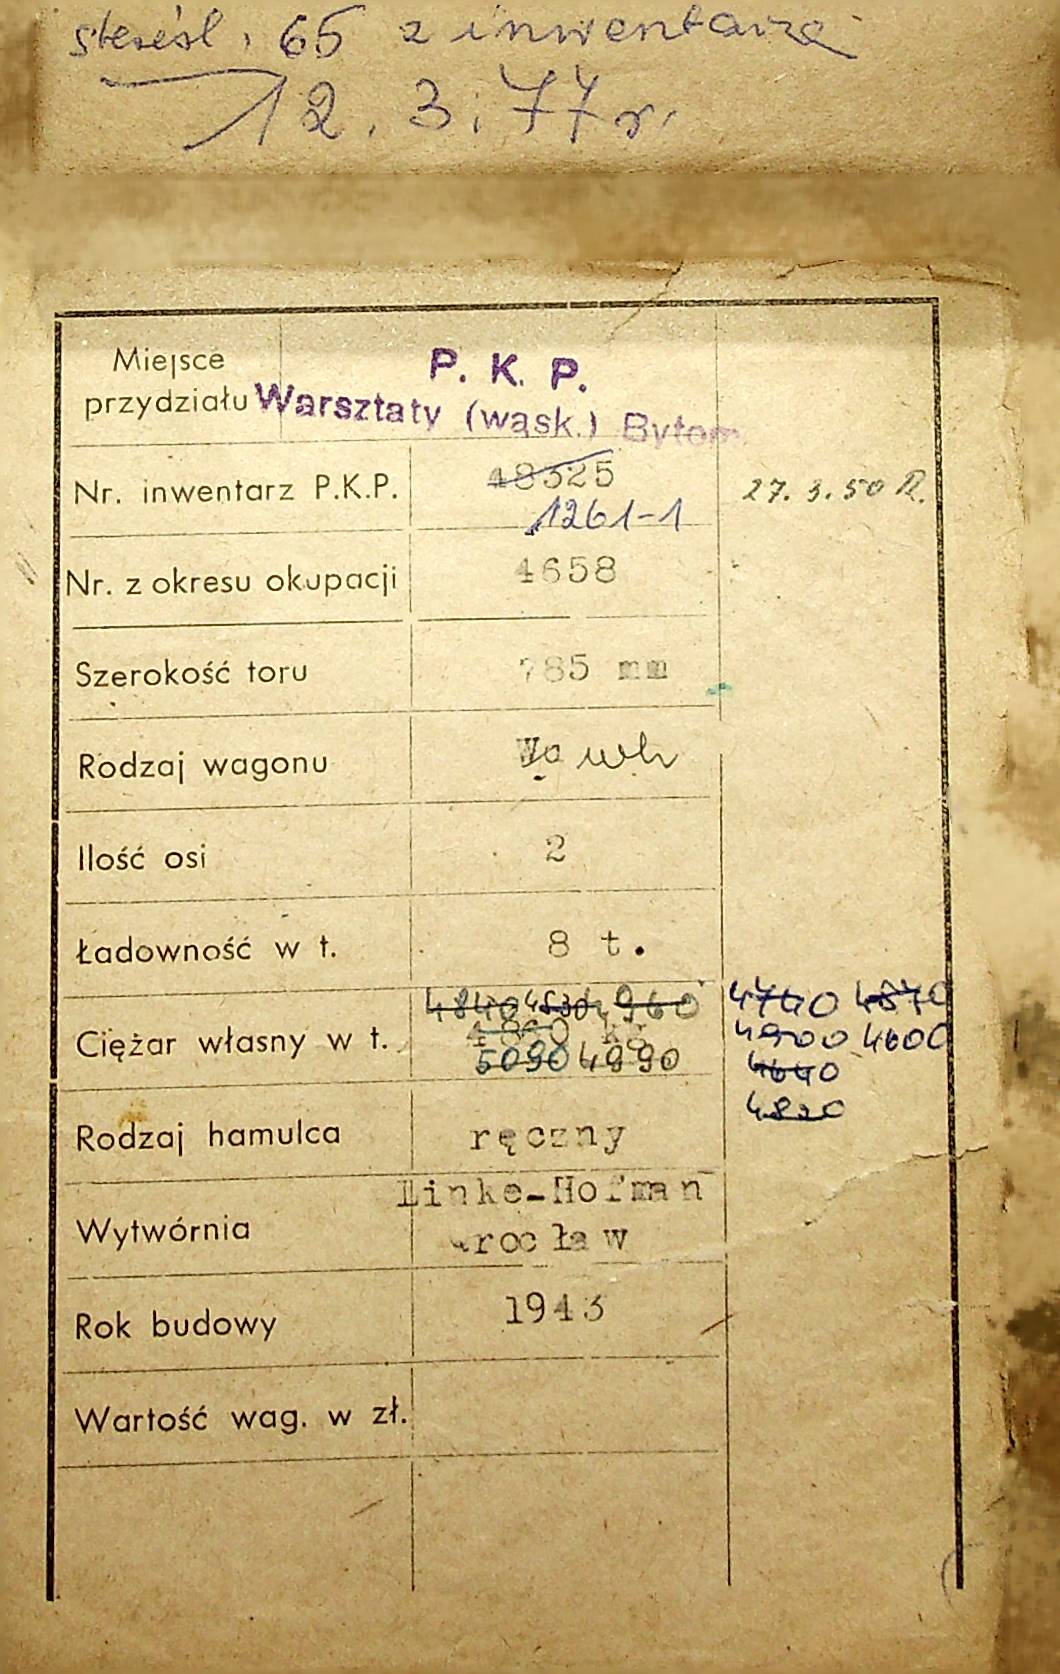 skreśl. 65 z inwentarza
12. 3. 77 r.
Miejsce przydziału
P. K. P.
Warsztaty (wąsk.) Bytom
Nr. inwentarz P.K.P. 48525 27. 3. 50 R.
1261-1
Nr. z okresu okupacji 4658
Szerokość toru 785 mm
Rodzaj wagonu
Ilość osi 2
Ładowność w t. 8 t.
Ciężar własny w t.
4840 4960 4740 4870
4860 kg 4900 4600
5090 4990 4640
4820
Rodzaj hamulca ręczny
Wytwórnia Linke-Hofman
Wrocław
Rok budowy 1943
Wartość wag. w zł.